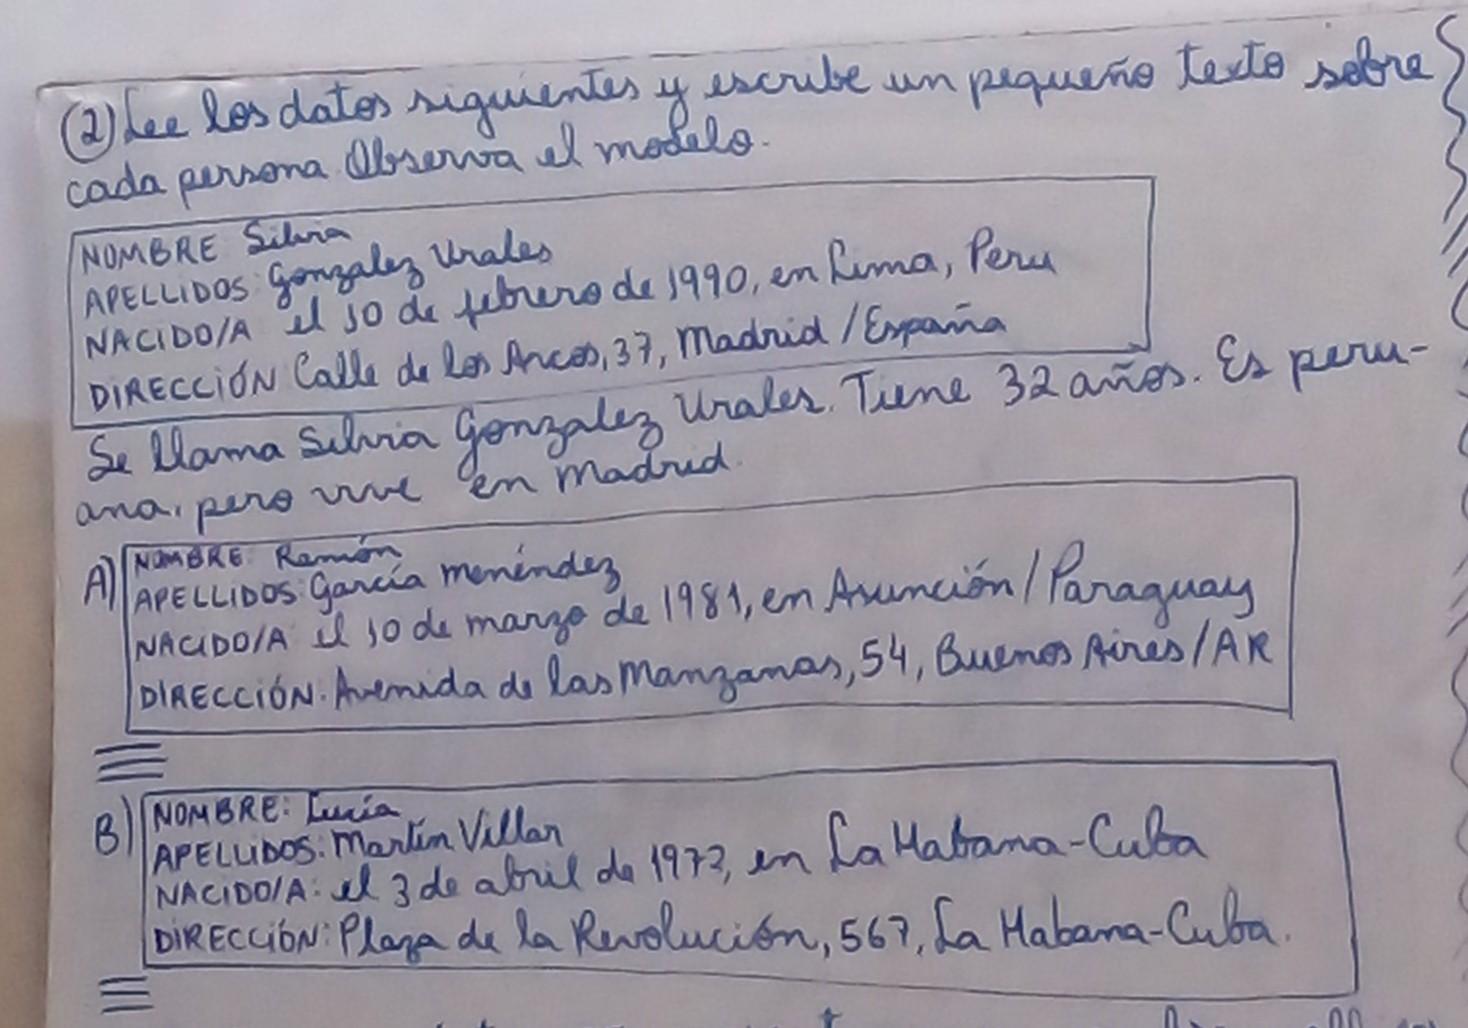 (2) Lee los datos siguientes y escribe un pequeño texto sobre
cada persona. Observa el modelo.
NOMBRE Silvia
APELLIDOS: Gonzalez Urales
NACIDO/A el 10 de febrero de 1990, en Lima, Peru
DIRECCIÓN Calle de los Arcos, 37, Madrid/España
Se llama Silvia Gonzalez Urales. Tiene 32 años. Es peru-
ana, pero vive en Madrid.
A) NOMBRE: Ramón
APELLIDOS: García Menéndez
NACIDO/A el 10 de marzo de 1981, en Asunción/Paraguay
DIRECCIÓN: Avenida de las Manzanas, 54, Buenos Aires/AR
B) NOMBRE: Lucía
APELLIDOS: Martín Villar
NACIDO/A: el 3 de abril de 1973, en La Habana-Cuba
DIRECCIÓN: Plaza de la Revolución, 567, La Habana-Cuba.